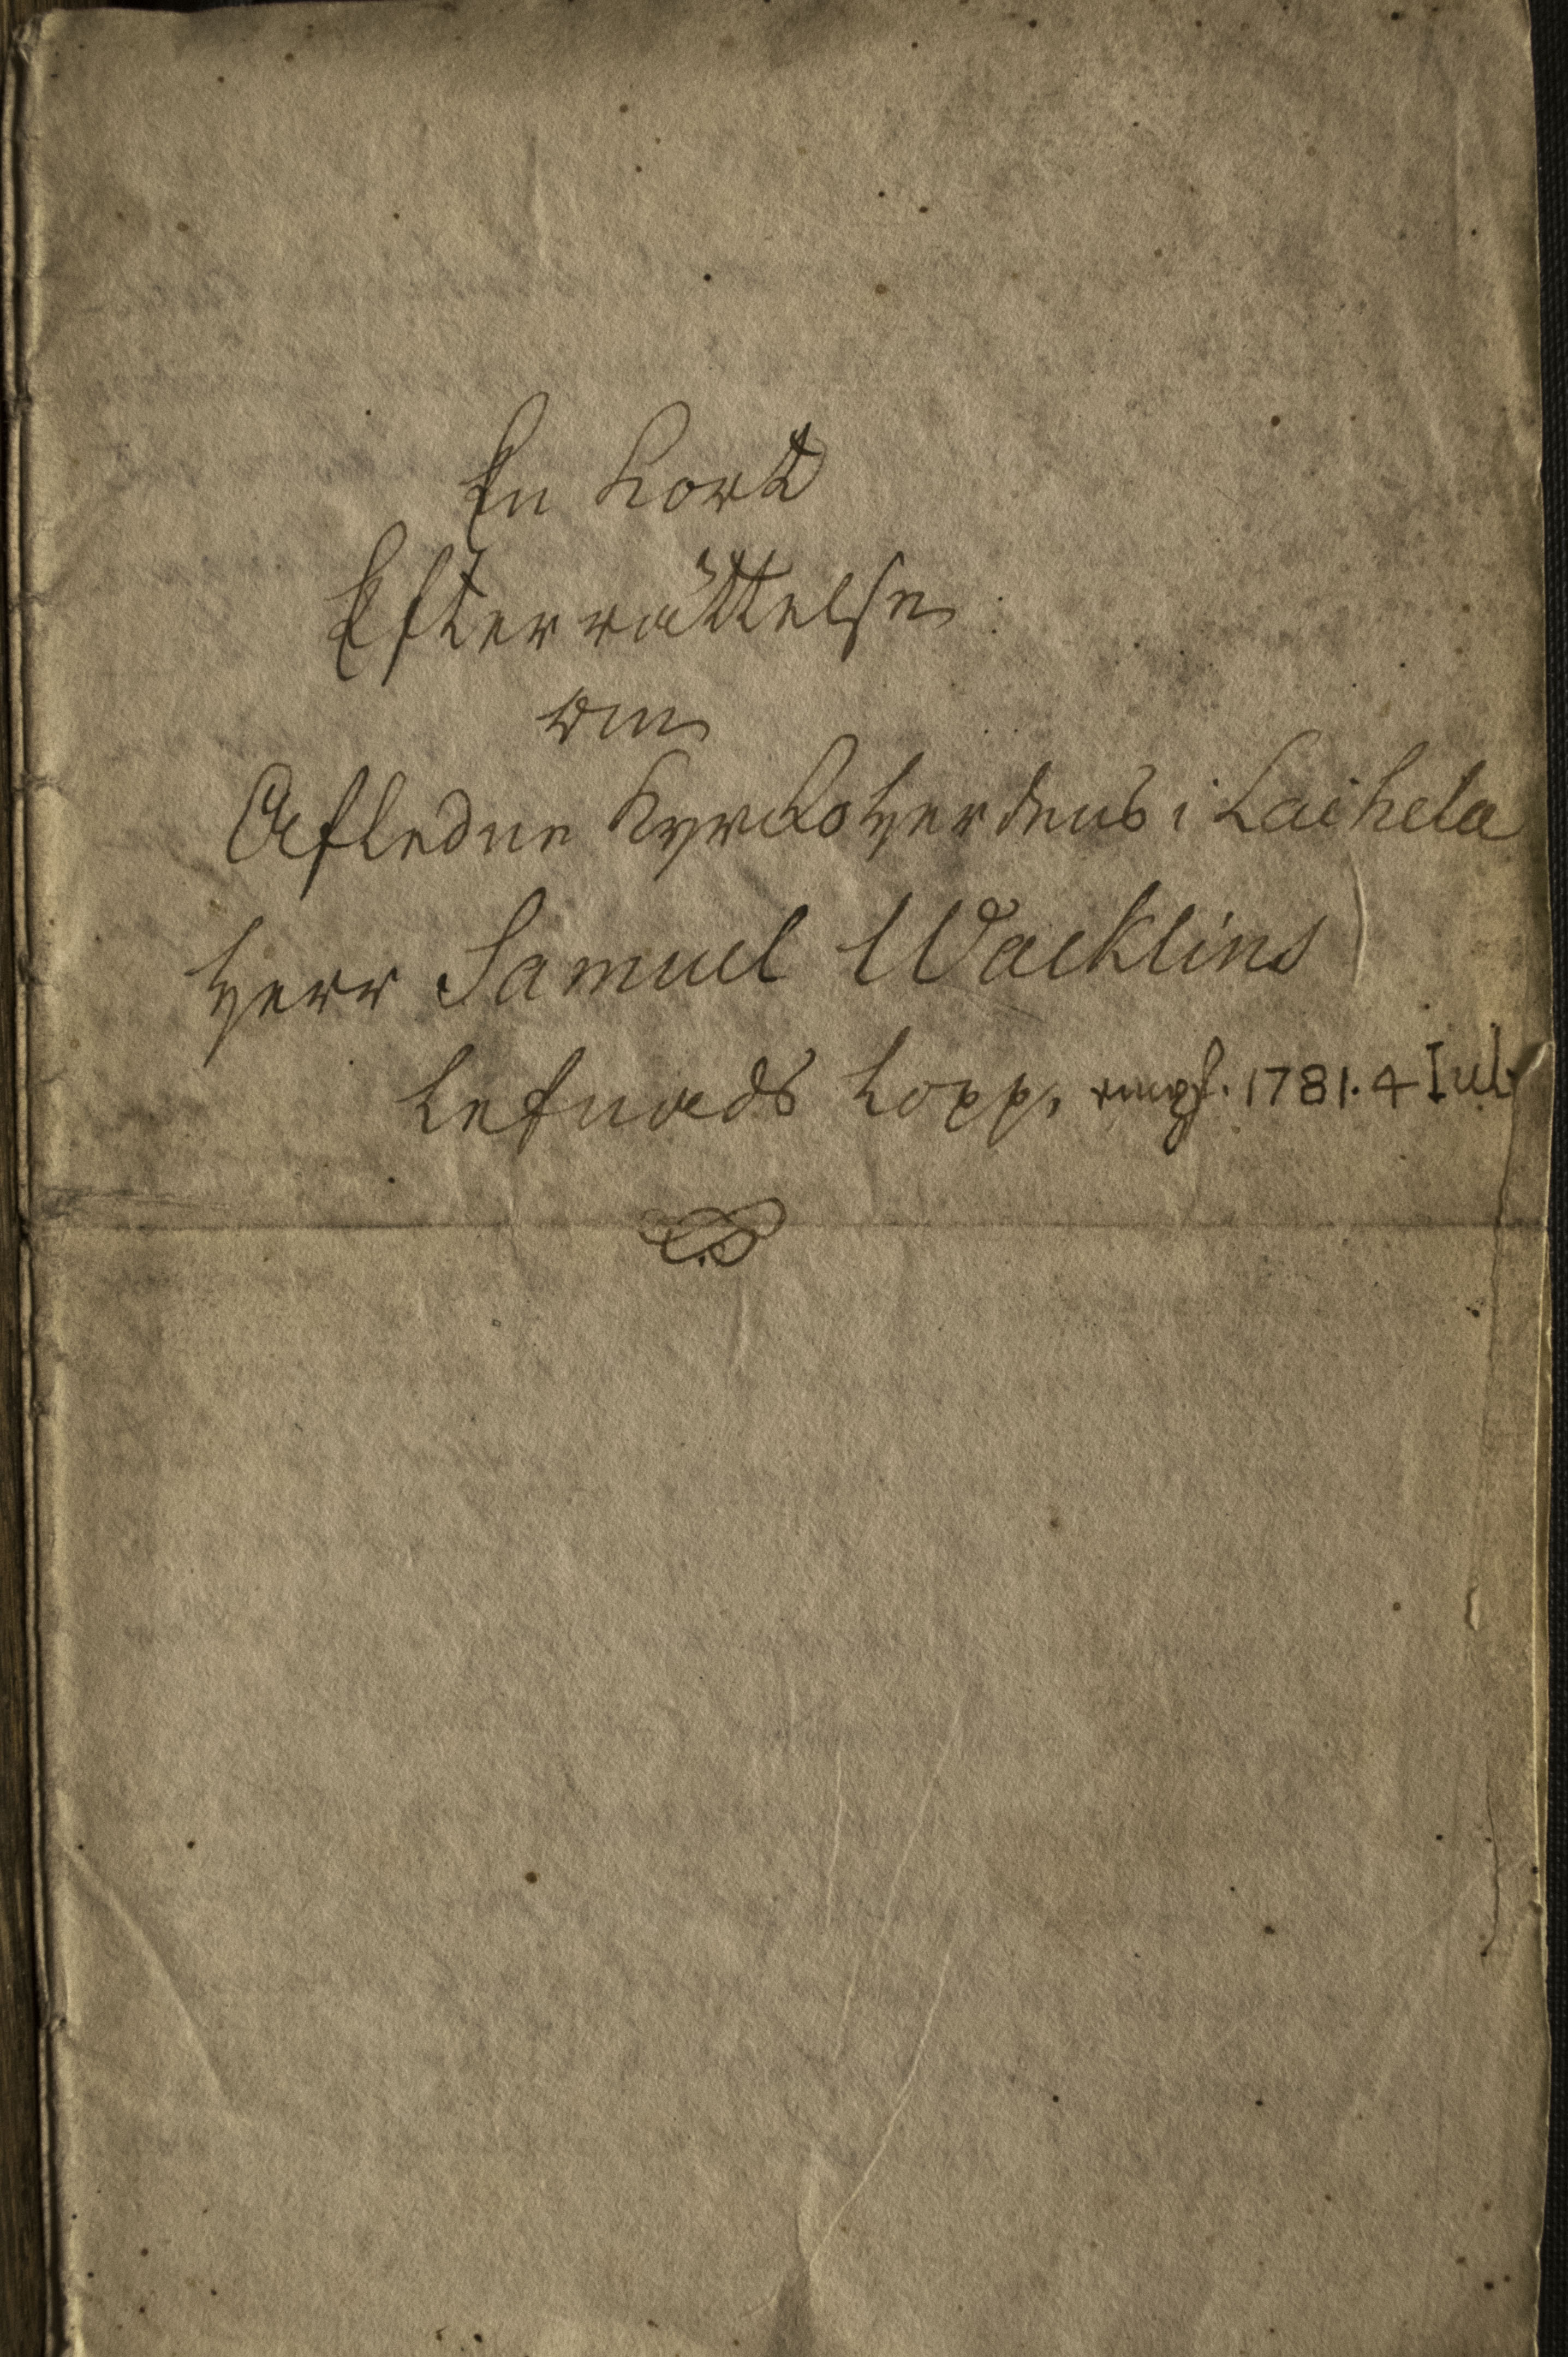 En Kort
Efterrättelse
om
Afledne Kyrckoherdens i Laihela
Herr Samuel Wacklins
Lefnads Lopp, 1781. 4 Iul